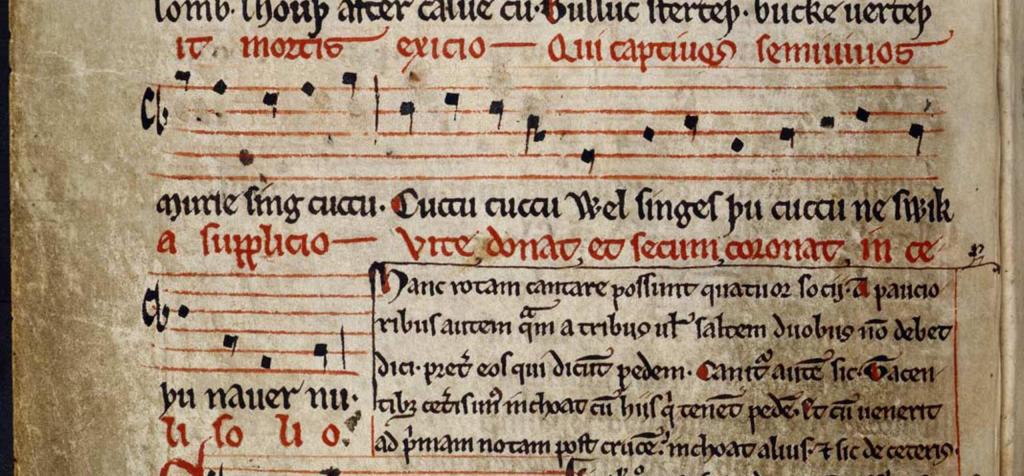 lomb. lhouþ after calue cu. Bulluc sterteþ. bucke uerteþ
it mortis exicio Qui captiuos semiuiuos
murie sing cuccu. Cuccu cuccu Wel singes þu cuccu ne swik
a supplicio Vite donat, et secum coronat, in ce
Hanc rotam cantare possunt quatuor socij. A paucio
ribus autem qͣm a tribus uł saltem duobus nō debet
dici. pret̃ eos qui dicūt pedem. Canitᷣ autē sic. Tacen
þu nauer nu.
tibꝫ cet̃is unꝰ inchoat cū hiis q̇ tenēt pedē. Et cū uenerit
li so li o.
ad p̃mam notam post crucē. inchoat alius. ⁊ sic de ceteris.